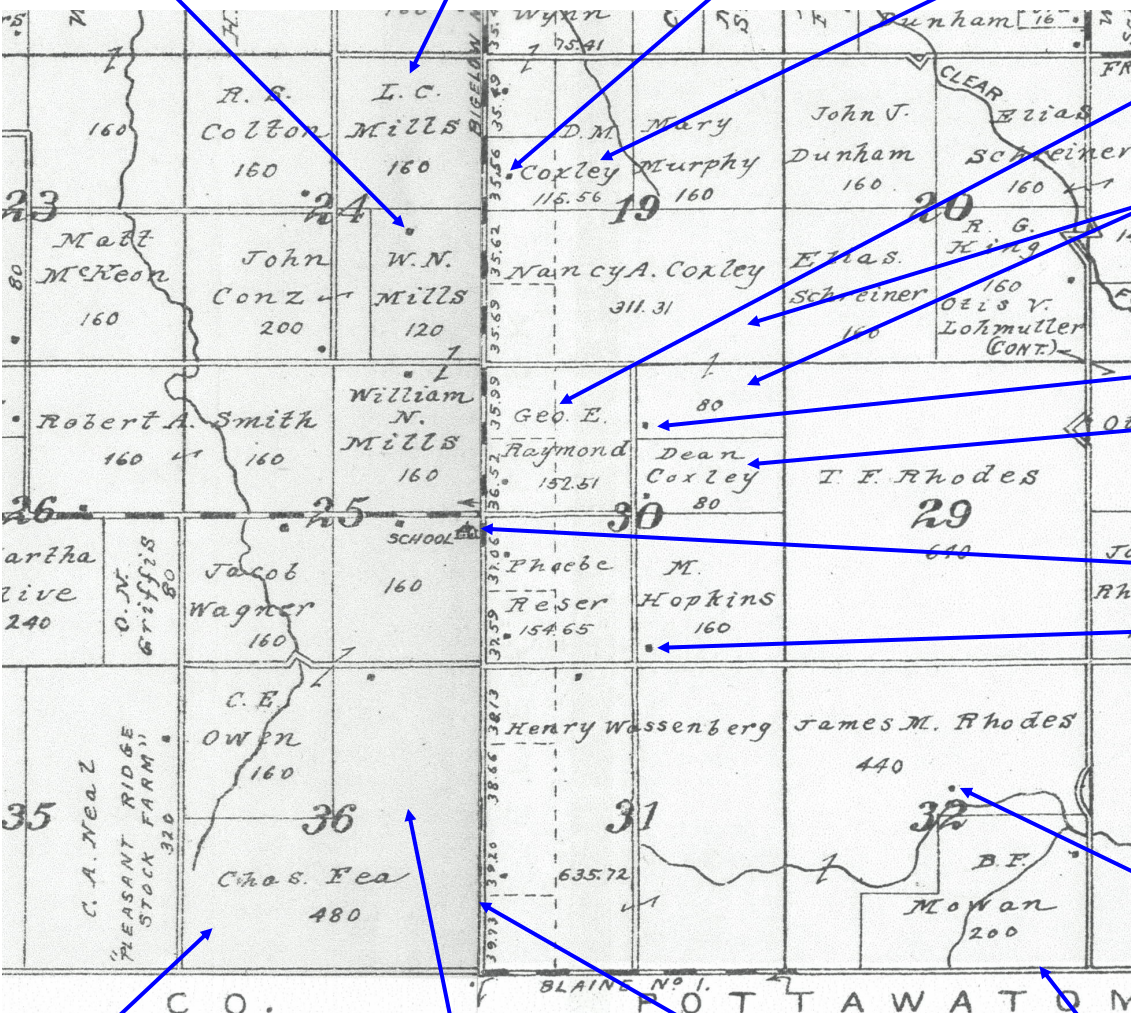 Wynn
75.41
Dunham
16
BIGELOW
CLEAR
FR
160
R. S.
Colton
160
L. C.
Mills
160
35.49
35.56
D.M.
Coxley
115.56
Mary
Murphy
160
John J.
Dunham
160
Elias
Schreiner
160
23
24
19
20
Matt
McKeon
160
80
John
Conz
200
W.N.
Mills
120
35.62
35.69
Nancy A. Coxley
311.31
Elias
Schreiner
160
R. G.
King
160
Otis V.
Lohmuller
(CONT.)
Robert A. Smith
160
160
William
N.
Mills
160
35.99
36.52
Geo. E.
Raymond
152.51
80
Dean
Coxley
80
T. F. Rhodes
640
26
25
30
29
SCHOOL
artha
live
240
O.N.
Griffis
80
Jacob
Wagner
160
160
37.06
37.59
Phoebe
Reser
154.65
M.
Hopkins
160
Rh
C. E.
Owen
160
38.13
38.66
Henry Wassenberg
James M. Rhodes
440
35
36
31
32
C. A. Neal
"PLEASANT RIDGE
STOCK FARM"
320
Chas. Fea
480
39.20
39.73
635.72
B.F.
Mowan
200
BLAINE No 1.
CO.
POTTAWATOM